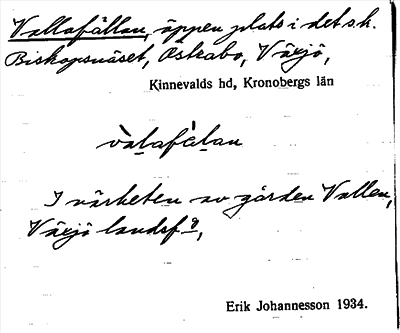 Vallafällan, äppen plats i det s.k.
Biskopsnäset, Östrabo, Växjö,
Kinnevalds hd, Kronobergs län
valafälan
I närheten av gården Vallen,
Växjö landsf g,
Erik Johannesson 1934.